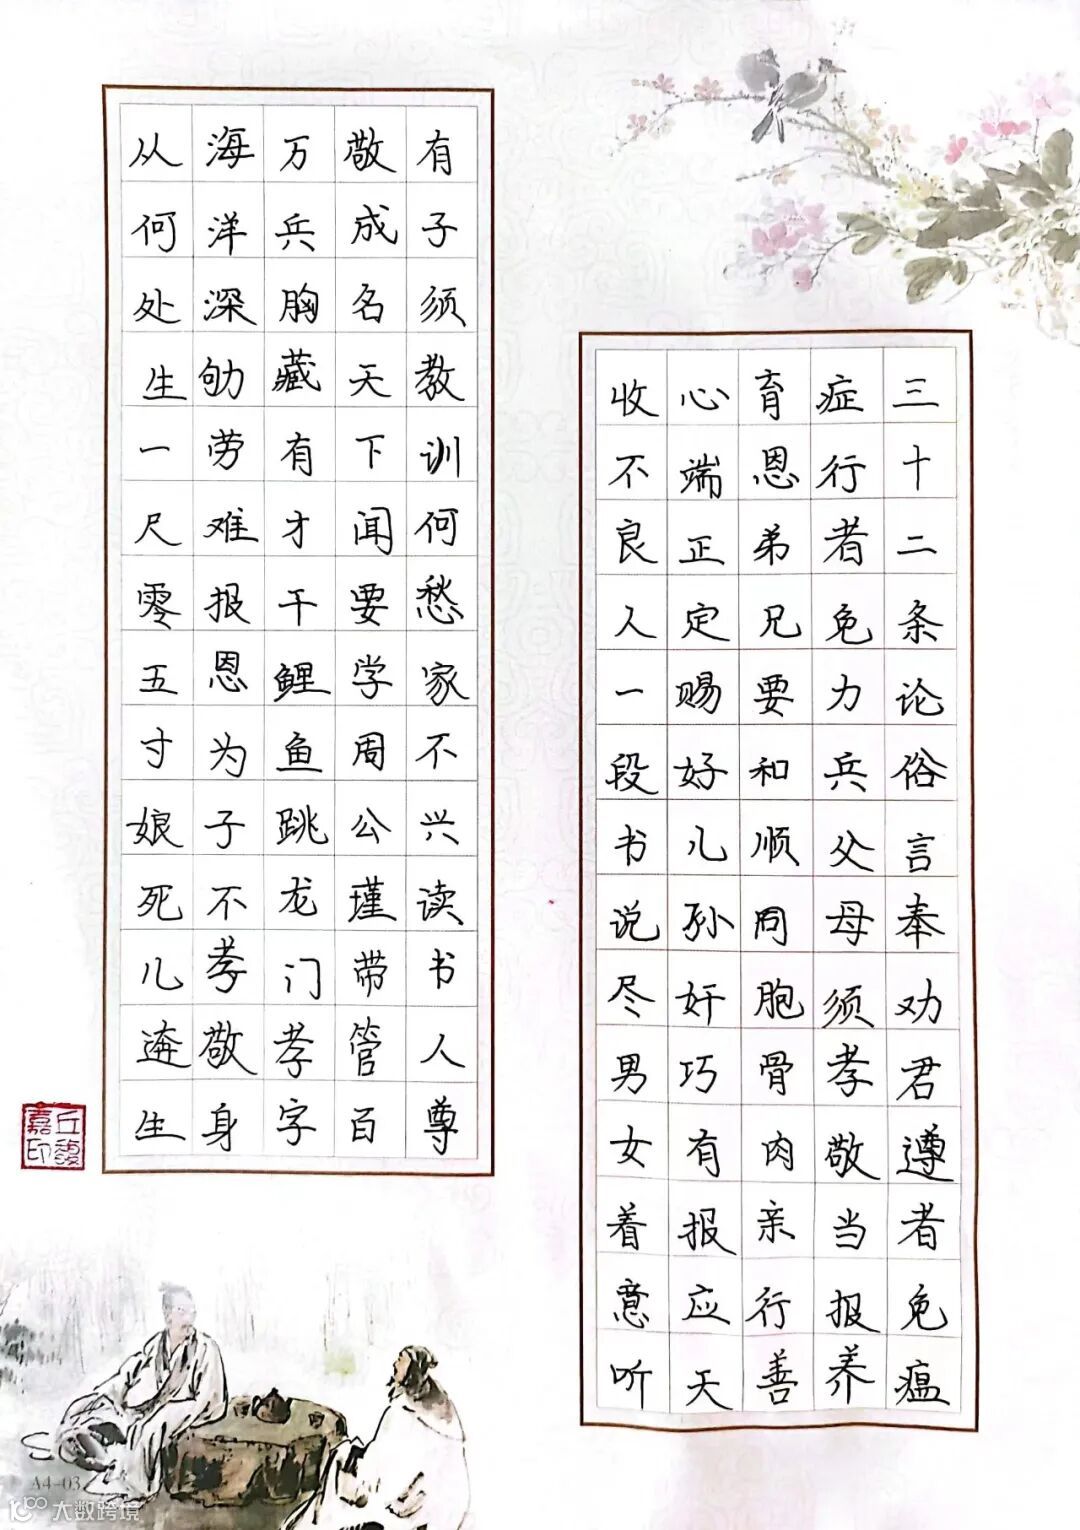 三十二条论俗言奉劝君遵者免瘟
症行者免力兵父母须孝敬当报养
育恩弟兄要和顺同胞骨肉亲行善
心端正定赐好儿孙奸巧有报应天
收不良人一段书说尽男女着意听
有子须教训何愁家不兴读书人尊
敬成名天下闻要学周公瑾带管百
万兵胸藏有才干鲤鱼跳龙门孝字
海洋深劬劳难报恩为子不孝敬身
从何处生一尺零五寸娘死儿逩生
丘馥
嘉印
A4-03
大数跨境